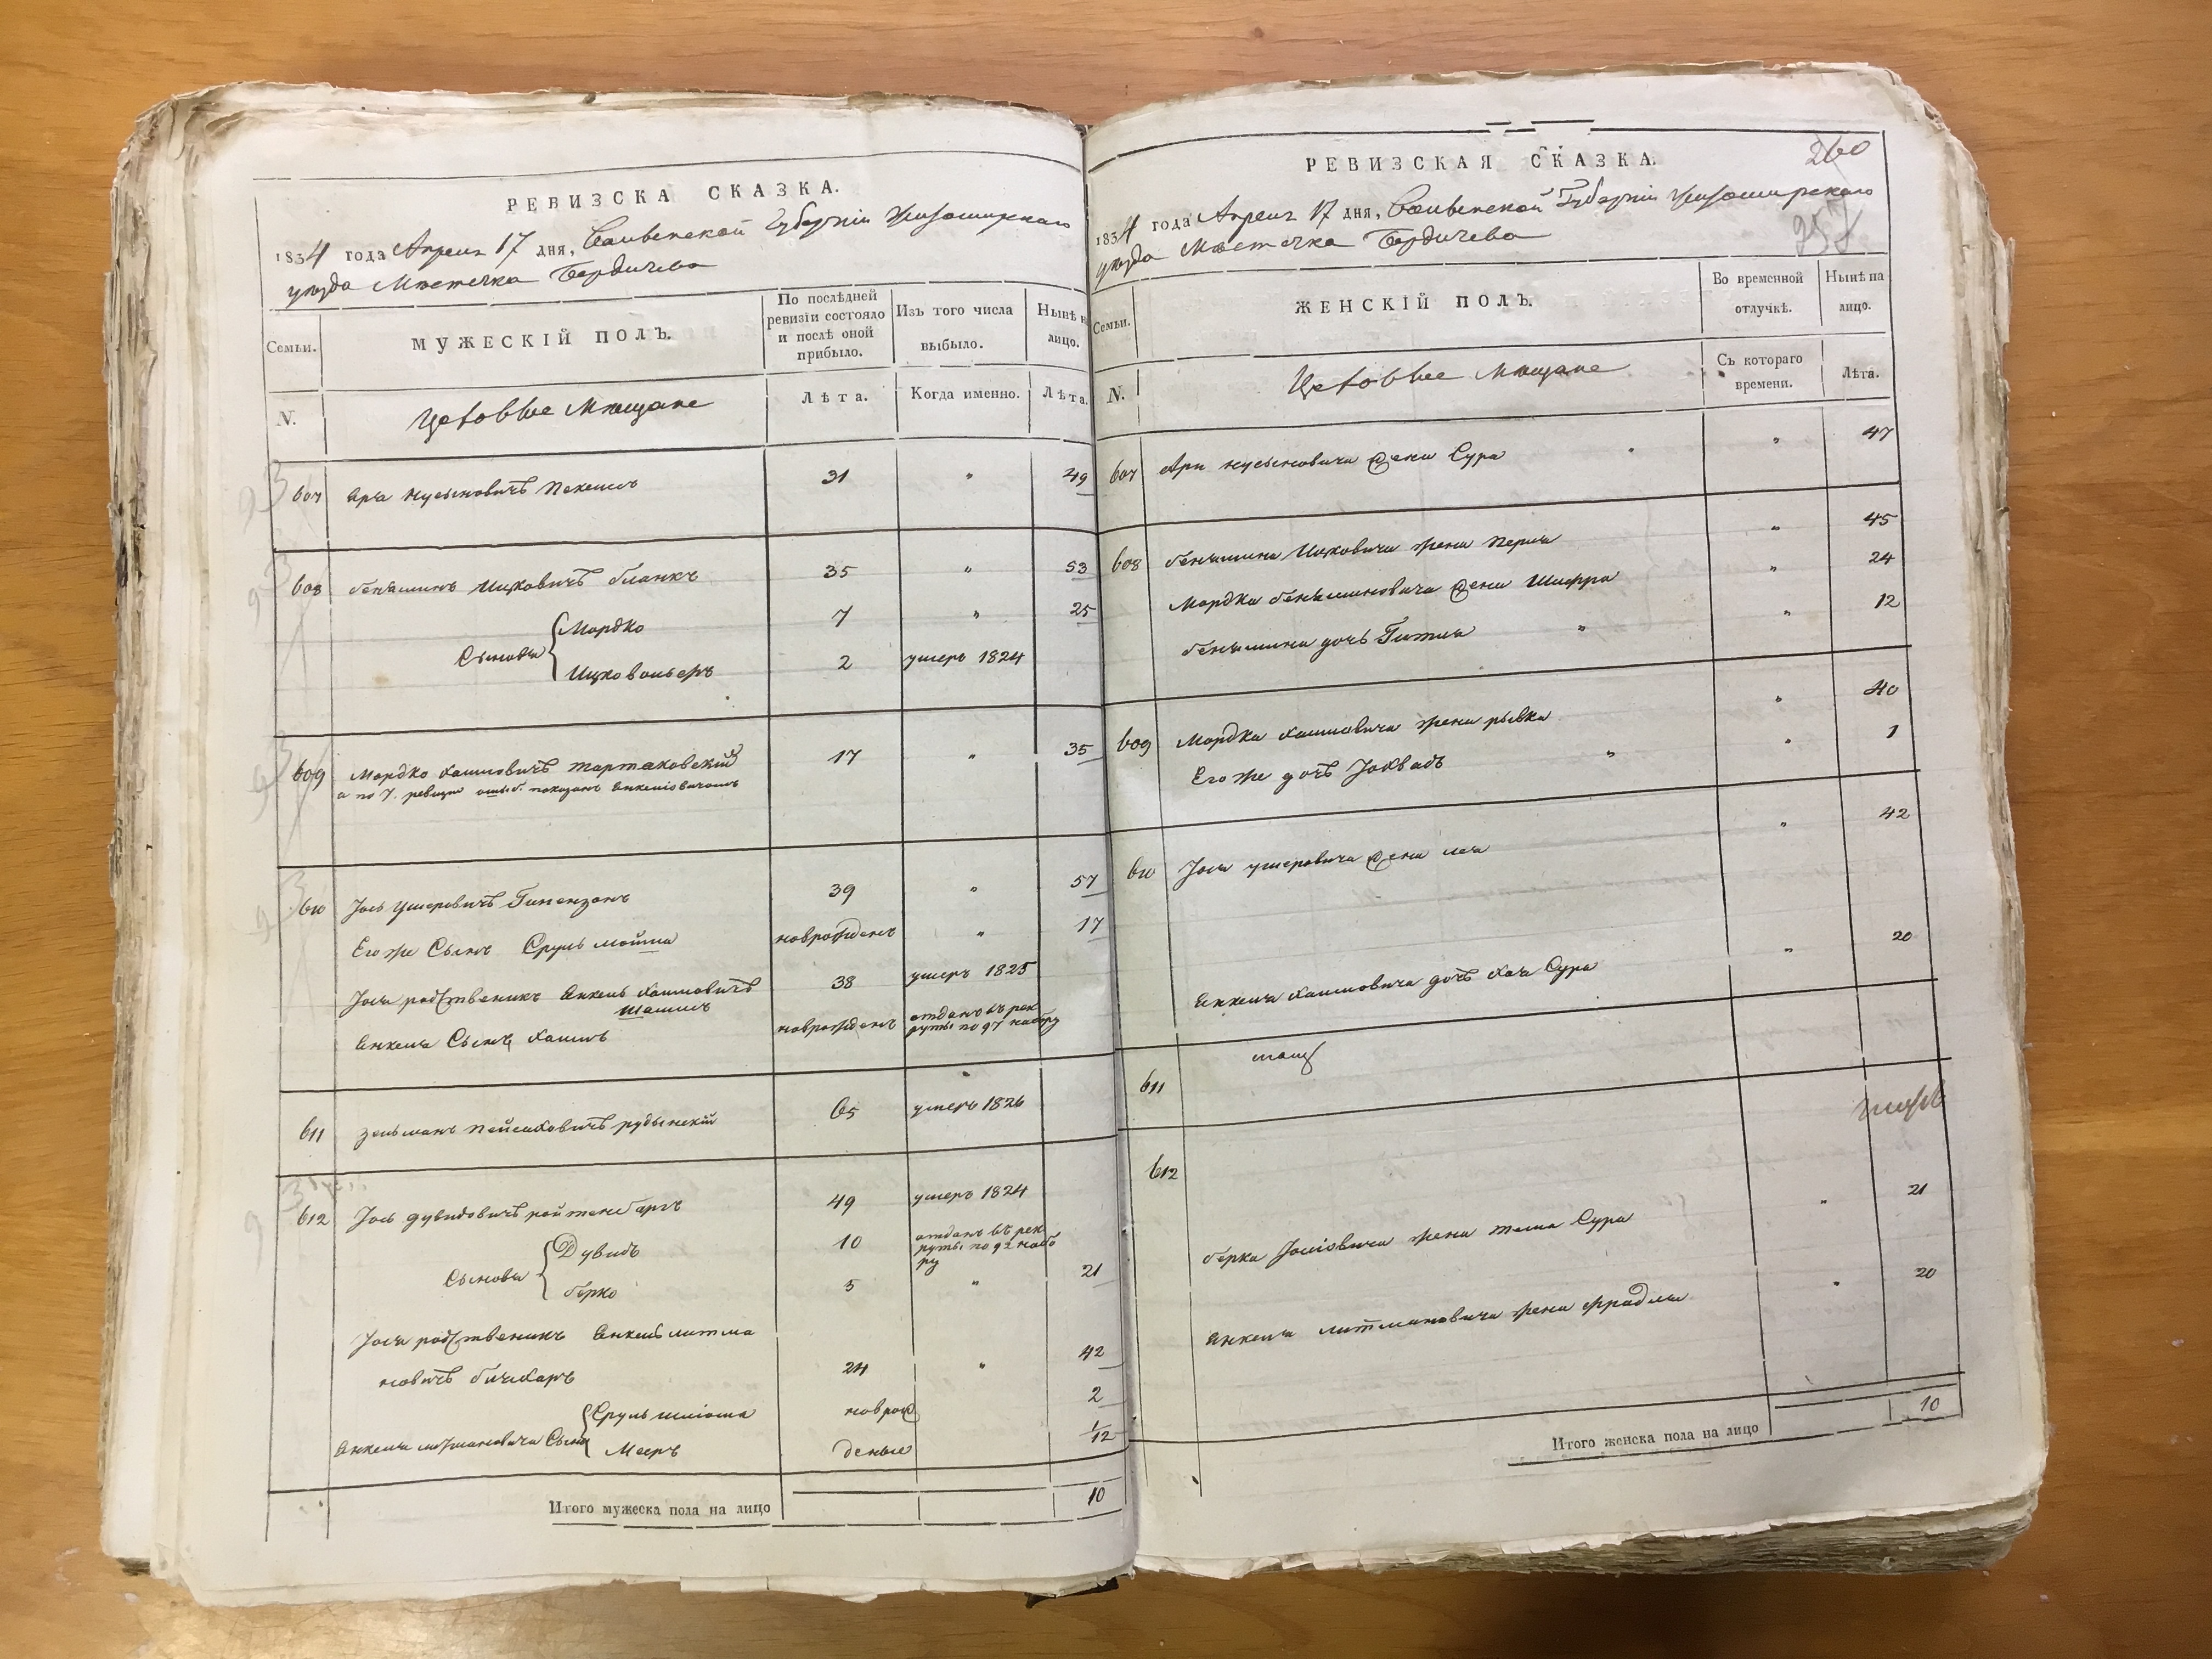 РЕВИЗСКА СКАЗКА.
1834 года Апреля 17 дня, Волынской Губерніи Житомирскаго
уѣзда Мѣстечка Бердичева
Семьи.
МУЖЕСКІЙ ПОЛЪ.
По послѣдней ревизіи состояло и послѣ оной прибыло.
Изъ того числа выбыло.
Нынѣ на лицо.
N.
Цеховые Мѣщане
Лѣта.
Когда именно.
Лѣта.
607 Арія Нусыновичъ 31 " 49
608 Беньяминъ Ицковичъ Бланкъ 35 " 53
Сыновья { Мордко 7 " 25
Ицко Вольфъ 2 умеръ 1824
609 Мордко Хаимовичъ Тартаковскій 17 " 35
а по 7. ревизіи ошиб. показанъ Янкеліовичомъ
610 Іось Ушеровичъ 39 " 57
Его же Сынъ Сруль Мойша новорожденъ " 17
Іося родственикъ Янкель Хаимовичъ 38 умеръ 1825
Янкеля Сынъ Хаимъ новорожденъ отданъ въ рек
руты по 97 набору
611 Зельманъ Пейсаховичъ 65 умеръ 1826
612 Іось Дувидовичъ Ройтенбергъ 49 умеръ 1824
Сыновья { Дувидъ 10 отданъ въ рек
руты по 92 набо
ру
Берко 5 " 21
Іося родственикъ Янкель Литма
новичъ 24 " 42
Янкеля Литмановича Сыны { Сруль новорож 2
Мееръ денные 1/12
Итого мужеска пола на лицо 10
РЕВИЗСКАЯ СКАЗКА.
260
1834 года Апреля 17 дня, Волынской Губерніи Житомирскаго
уѣзда Мѣстечка Бердичева
257
Семьи.
ЖЕНСКІЙ ПОЛЪ.
Во временной отлучкѣ.
Нынѣ на лицо.
N.
Цеховые Мѣщане
Съ котораго времени.
Лѣта.
607 Аріи Нусыновича жена Сура " 47
608 Беньямина Ицковича жена Перля " 45
Мордка Беньяминовича жена Шифра " 24
Беньямина дочь Гитля " 12
609 Мордка Хаимовича жена Рывка " 40
Его же дочь " 1
610 Іося Ушеровича жена Лея " 42
Янкеля Хаимовича дочь Хая Сура " 20
611
612
Берка Іосіовича жена Сура " 21
Янкеля Литмановича жена Фрадля " 20
Итого женска пола на лицо 10